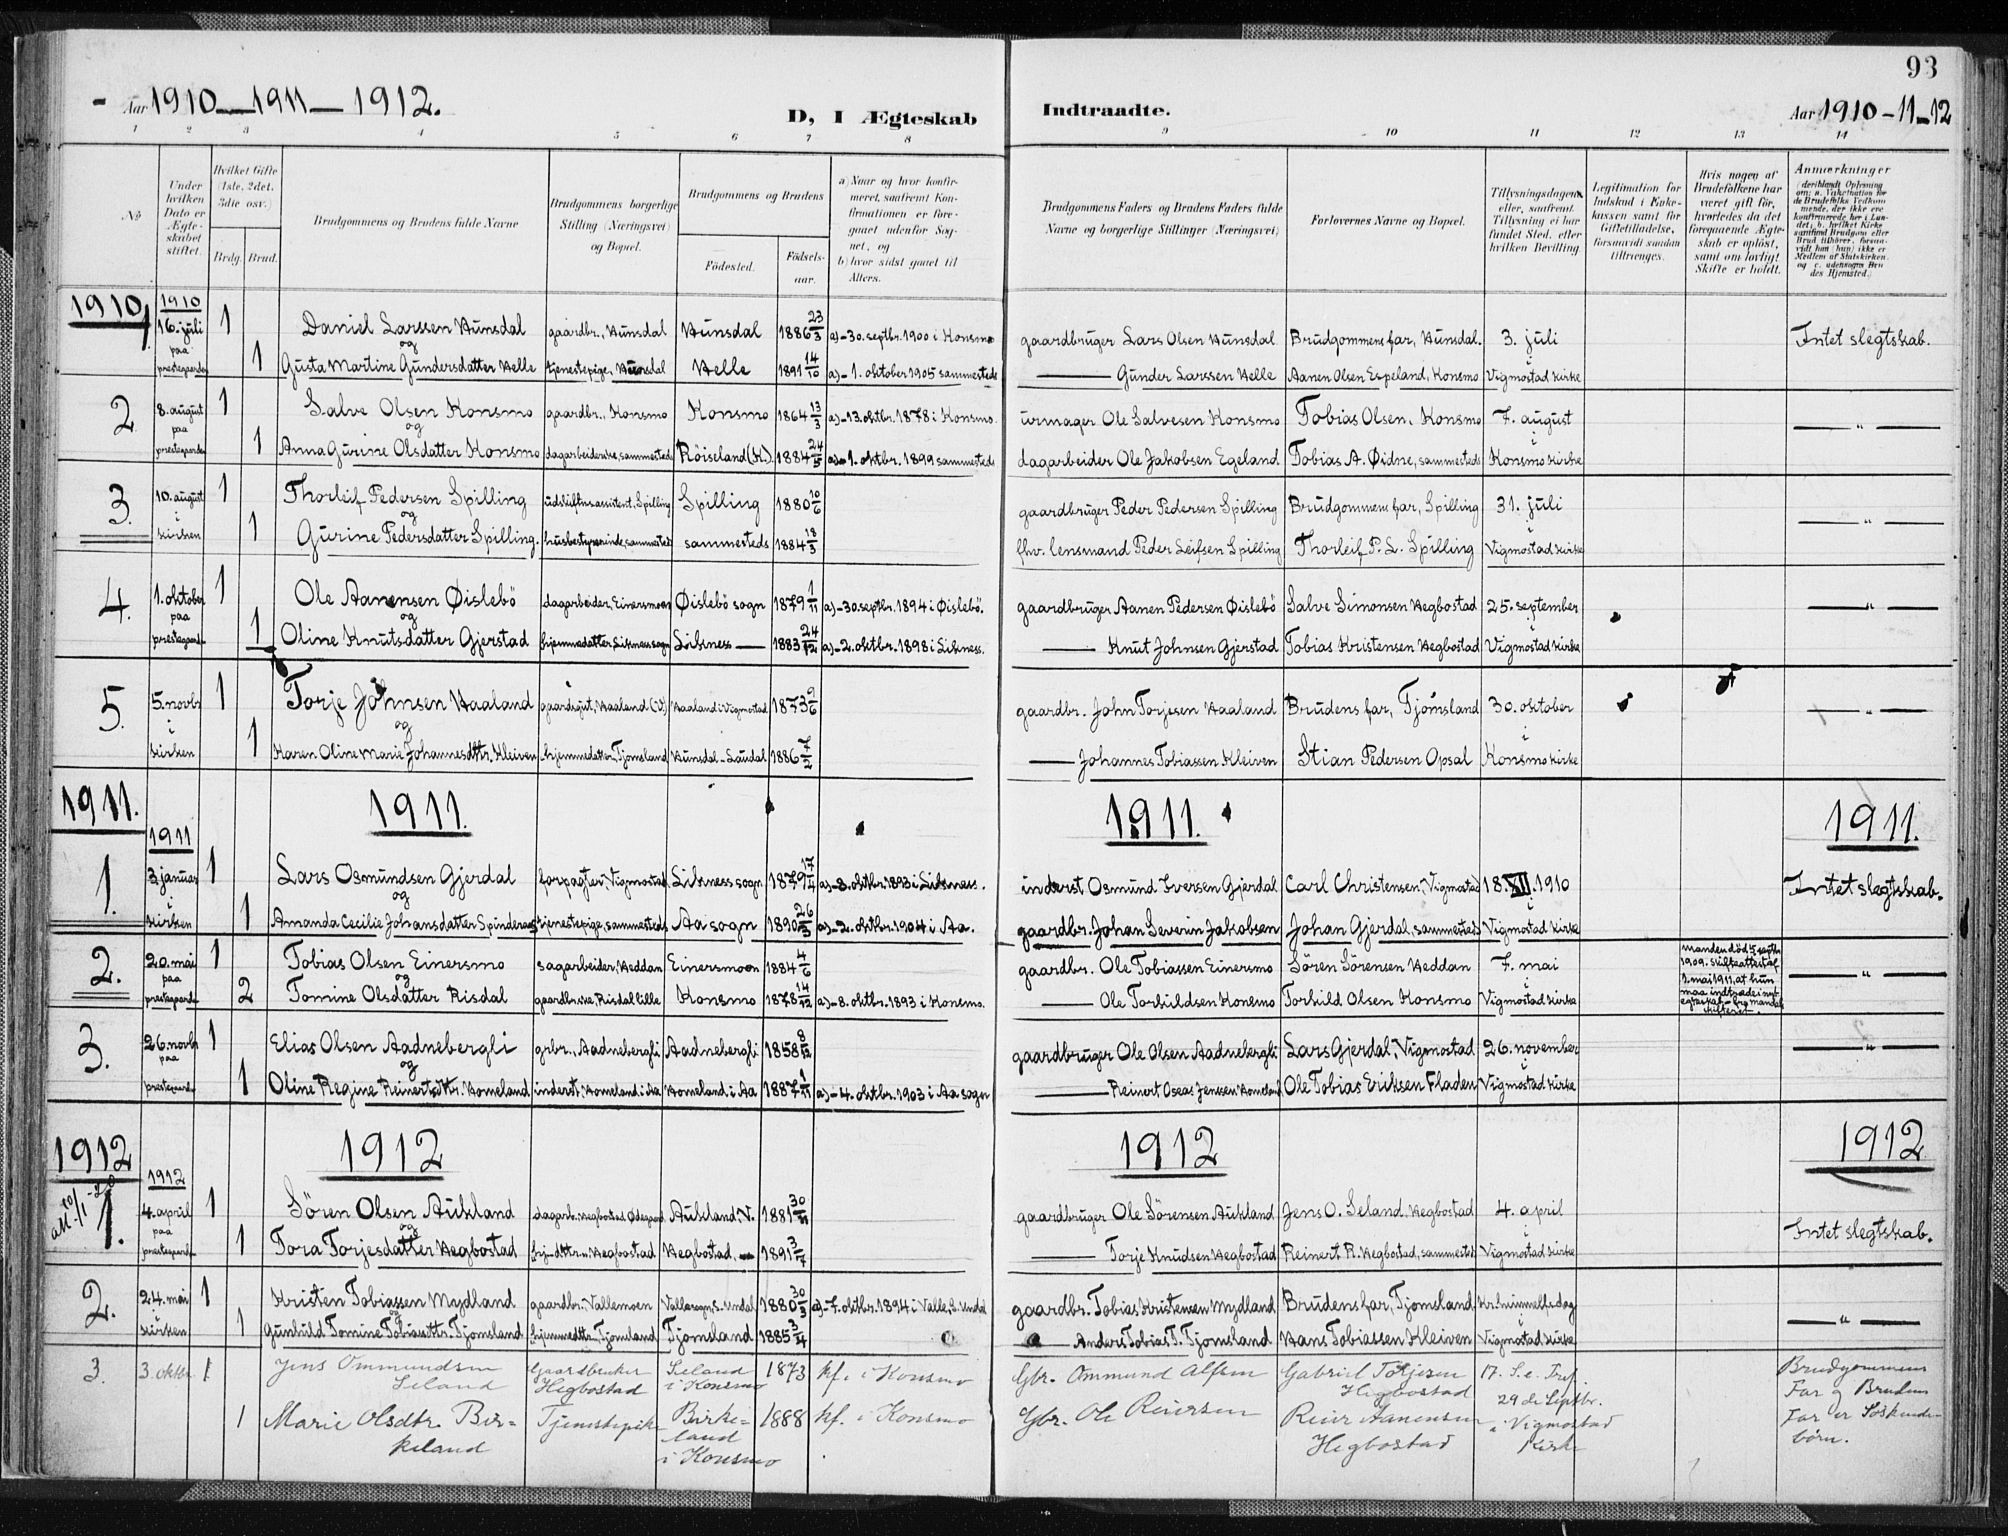 Aar 1910 — 1911 — 1912.
D, I Ægteskab
Indtraadte.
93
Aar 1910 - 11 - 12
1 2 3 4 5 6 7 8
9 10 11 12 13 14
No
Under hvilken Dato er Ægteskabet stiftet.
Hvilket Gifte (1ste, 2det, 3die osv.)
Brdg. Brud.
Brudgommens og Brudens fulde Navne
Brudgommens borgerlige Stilling (Næringsvei) og Bopæl.
Brudgommens og Brudens
Fødested. Fødselsaar.
a) Naar og hvor konfirmeret, saafremt Konfirmationen er foregaaet udenfor Sognet, og
b) hvor sidst gaaet til Alters.
Brudgommens Faders og Brudens Faders fulde Navne og borgerlige Stillinger (Næringsvei)
Forlovernes Navne og Bopæl.
Tillysningsdagene eller, saafremt Tillysning ei har fundet Sted, efter hvilken Bevilling
Legitimation for Indskud i Enkekassen samt for Giftetilladelse, forsaavidt saadan tiltrænges.
Hvis nogen af Brudefolkene har været gift før, hvorledes da det foregaaende Ægteskab er opløst, samt om lovligt Skifte er holdt.
Anmærkninger
1910
1 1910 16. juli 1 Daniel Larssen Hunsdal gaardbr., Hunsdal Hunsdal 1886 23/3 a) - 30. septbr. 1900 i Konsmo gaardbruger Lars Olsen Hunsdal Brudgommens far, Hunsdal. 3. juli Intet slegtskab.
paa og i
prestegaarden 1 Gusta Martine Gundersdatter Helle tjenestepige, Hunsdal Helle 1891 14/10 a) - 1. oktober 1905 sammesteds — Gunder Larssen Helle Aanen Olsen Espeland, Konsmo Vigmostad kirke
2 8. august 1 Salve Olsen Konsmo gaardbr., Konsmo Konsmo 1864 13/3 a) - 13. oktbr. 1878 i Konsmo. urmager Ole Salvesen Konsmo Tobias Olsen, Konsmo 7. august — " —
paa og i
prestegaarden 1 Anna Gurine Olsdatter Konsmo dagarbeiderske, sammesteds Röiseland (K.) 1884 24/5 a) - 1. oktbr. 1899 sammesteds dagarbeider Ole Jakobsen Egeland Tobias A. Øidne, sammesteds Konsmo kirke
3. 10. august 1 Thorleif Pedersen Spilling udskiftn.assistent, Spilling Spilling 1880 10/6 gaardbruger Peder Pedersen Spilling Brudgommens far, Spilling 31. juli — " —
i og i
kirken 1 Gurine Pedersdatter Spilling. husbestyrerinde, sammesteds sammesteds 1884 18/3 fhv. lensmand Peder Leifsen Spilling Thorleif P. L. Spilling Vigmostad kirke
4. 1. oktober 1 Ole Aanensen Øislebö dagarbeider, Einersmoen Øislebö sogn 1879 1/11 a) - 30. septbr. 1894 i Øislebö. gaardbruger Aanen Pedersen Øislebö Salve Simonsen Hegbostad 25. september — " —
paa og i
prestegaarden 1 Oline Knutsdatter Gjerstad hjemmedatter, Liknes sogn Liknes — 1883 24/12 a) - 2. oktbr. 1898 i Liknes. — Knut Johnsen Gjerstad Tobias Kristensen Hegbostad Vigmostad kirke
5. 5. novbr 1 Torje Johnsen Haaland gaardsgut, Haaland (V) Haaland i Vigmostad 1873 9/6 gaardbr. John Torjesen Haaland Brudens far, Tjomsland 30. oktober — " —
i og i
kirken 1 Karen Oline Marie Johannesdttr. Kleiven hjemmedatter, Tjomsland Hunsdal - Laudal 1886 7/2 — Johannes Tobiassen Kleiven Stian Pedersen Opsal Konsmo kirke
1911. 1911. 1911. 1911.
1911
1. 3. januar 1 Lars Osmundsen Gjerdal forpagter, Vigmostad Liknes sogn 1879 17/4 a) - 8. oktbr. 1893 i Liknes. inderst Osmund Iversen Gjerdal Carl Christensen, Vigmostad 18. XII. 1910 Intet slegtskab.
i og i
kirken 1 Amanda Cecilie Johansdatter tjenestepige, sammesteds Aa sogn 1890 26/3 a) - 2. oktbr. 1904 i Aa. gaardbr. Johan Severin Jakobsen Johan Gjerdal, sammesteds Vigmostad kirke
2. 20. mai 1 Tobias Olsen Einersmo sagarbeider, Heddan Einersmoen 1884 4/6 gaardbr. Ole Tobiassen Einersmo Sören Sörensen Heddan 7. mai manden död 1909. skifteattest af 1. mai 1911, at hun maa indtræde i nyt egteskab — " —
paa og i
prestegaarden 2 Tomine Olsdatter Risdal gaardbr.ske, Risdal lille Konsmo 1878 14/12 a) - 8. oktbr. 1893 i Konsmo. — Ole Torkildsen Konsmo Torkild Olsen Konsmo Vigmostad kirke
3. 26. novbr 1 Elias Olsen Aadnebergli grbr., Aadnebergli Aadnebergli 1858 8/12 gaardbruger Ole Olsen Aadnebergli Lars Gjerdal, Vigmostad 26. november — " —
paa og i
prestegaarden 1 Oline Regine Reinertsdttr. Homeland inderst, Homeland i Aa Homeland i Aa 1887 1/11 a) - 4. oktbr. 1903 i Aa sogn — Reinert Oseas Jenssen Homeland Ole Tobias Eriksen Fladen Vigmostad kirke
1912 1912 1912 1912
1912
1. 4. april 1 Sören Olsen Aukland dagarb. Hegbostad Ødegaard Aukland, V. 1881 30/11 gaardbruger Ole Sörensen Aukland Jens O. Seland, Hegbostad 4. april Intet slegtskab.
paa og i
prestegaarden 1 Tora Torjesdatter Hegbostad hj.dttr. Hegbostad Hegbostad, — 1891 3/7 — Torje Knudsen Hegbostad Reinert R. Hegbostad, sammesteds Vigmostad kirke
2. 24. mai 1 Kristen Tobiassen Mydland gaardbr., Vallemoen Valle sogn, S. Undal 1880 30/3 a) - 7. oktbr. 1894 i Valle, S. Undal gaardbr. Tobias Kristensen Mydland Brudens far, Tjomsland Kr. himmelf.dag — " —
i og i
kirken 1 Gunhild Tomine Tobiasdttr. Tjomsland hjemmedttr., Tjomsland Tjomsland 1885 3/4 — Anders Tobias T. Tjomsland Hans Tobiassen Kleiven Vigmostad kirke
3. 3. oktbr. 1 Jens Ommundsen Seland Gaardbruker Hegbostad Seland i Konsmo 1873 kf. i Konsmo Gbr. Ommund Alfsen Gabriel Torjesen Hegbostad 17. S. e. Tref. 29 de Septbr. i Vigmostad Kirke Brudgommens Far og Brudens Far er Söskendebörn.
1 Marie Olsdtr. Birkeland Tjenestepike Birkeland i Konsmo 1888 kf. i Konsmo Gbr. Ole Reiersen Reier Aanensen Hegbostad